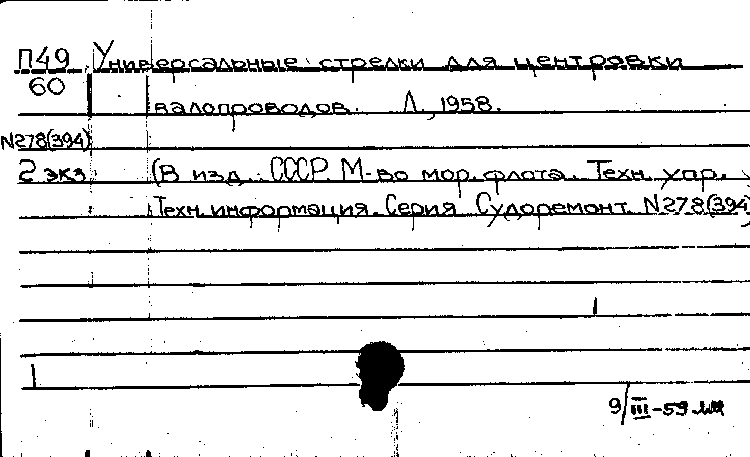 П49 Универсальные стрелки для центровки
60 валопроводов. Л., 1958.
N278(394)
2 экз. (В изд.: СССР. М-во мор. флота. Техн. упр.
Техн. информация. Серия Судоремонт. N278(394)
9/III-59